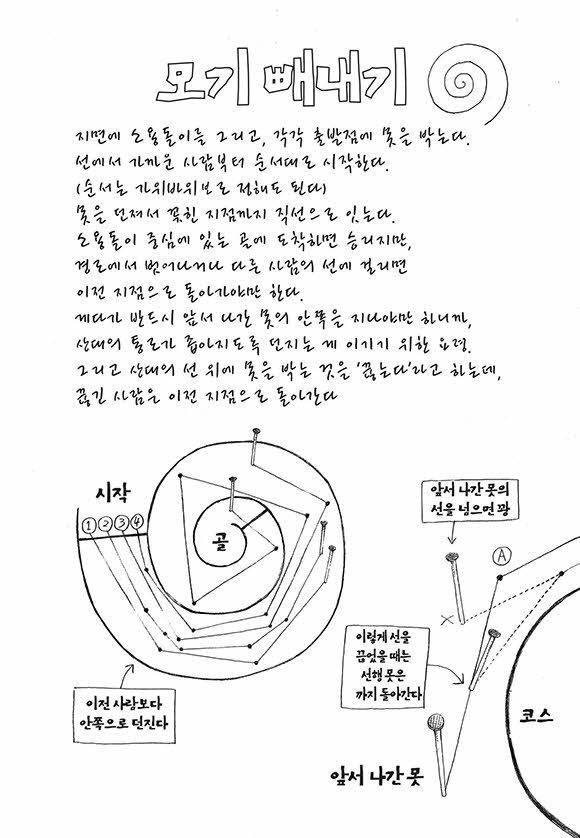 모기 빼내기
지면에 소용돌이를 그리고, 각각 출발점에 못을 박는다.
선에서 가까운 사람부터 순서대로 시작한다.
(순서는 가위바위보로 정해도 된다)
못을 던져서 꽂힌 지점까지 직선으로 잇는다.
소용돌이 중심에 있는 골에 도착하면 승리지만,
경로에서 벗어나거나 다른 사람의 선에 걸리면
이전 지점으로 돌아가야만 한다.
게다가 반드시 앞서 나간 못의 안쪽을 지나야만 하니까,
상대의 통로가 좁아지도록 던지는 게 이기기 위한 요령.
그리고 상대의 선 위에 못을 박는 것을 '끊는다'라고 하는데,
끊긴 사람은 이전 지점으로 돌아간다
시작
① ② ③ ④
골
이전 사람보다
안쪽으로 던진다
앞서 나간 못의
선을 넘으면 꽝
A
×
이렇게 선을
끊었을 때는
선행 못은
까지 돌아간다
코스
앞서 나간 못